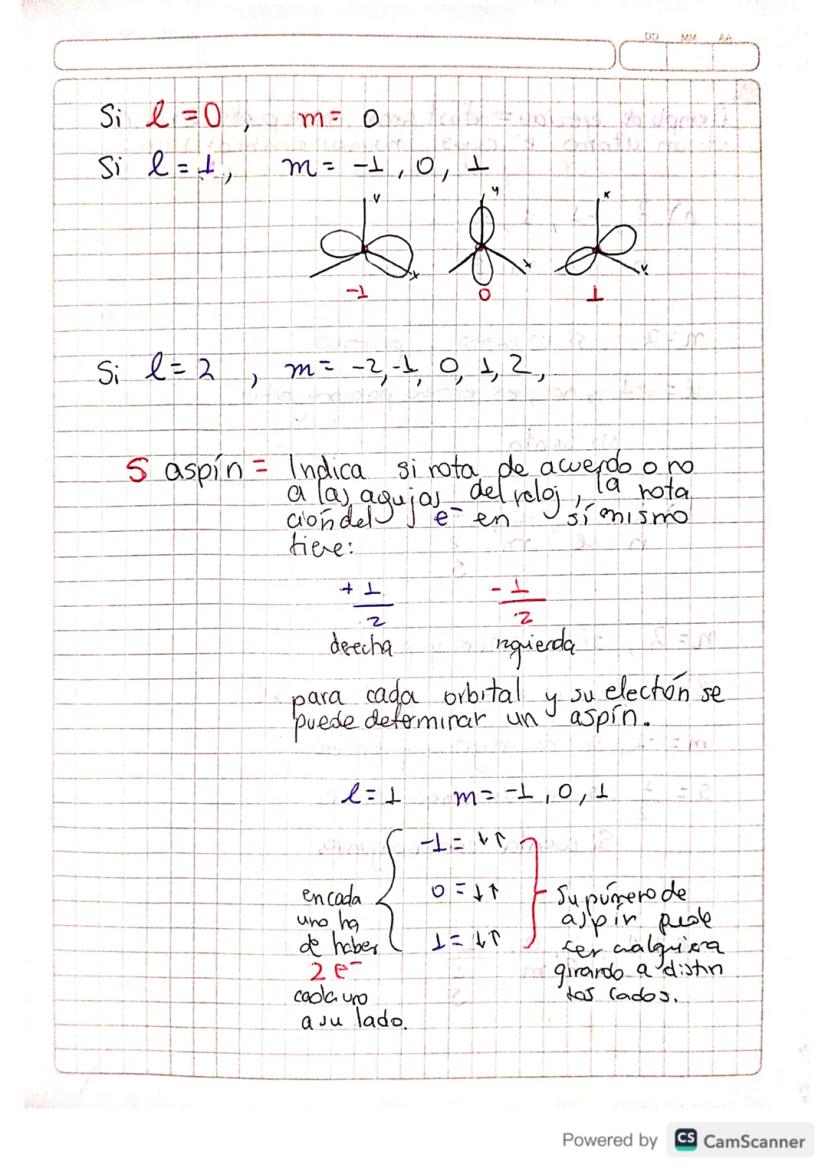 DD MM AA
Si l = 0, m = 0
Si l = 1, m = -1, 0, 1
y y x
x x y
-1 0 1
Si l = 2, m = -2,-1, 0, 1, 2,
S aspín = Indica si rota de acuerdo o no
a las agujas del reloj, la rota
ción del e⁻ en sí mismo
tiene:
+ 1/2 - 1/2
derecha izquierda
para cada orbital y su electrón se
puede determinar un aspín.
l = 1 m = -1, 0, 1
-1 = ↓↑
0 = ↓↑
1 = ↓↑
en cada
uno ha
de haber
2 e⁻
cada uno
a su lado.
Su número de
aspín puede
ser cualquiera
girando a distin
tos lados.
Powered by CS CamScanner